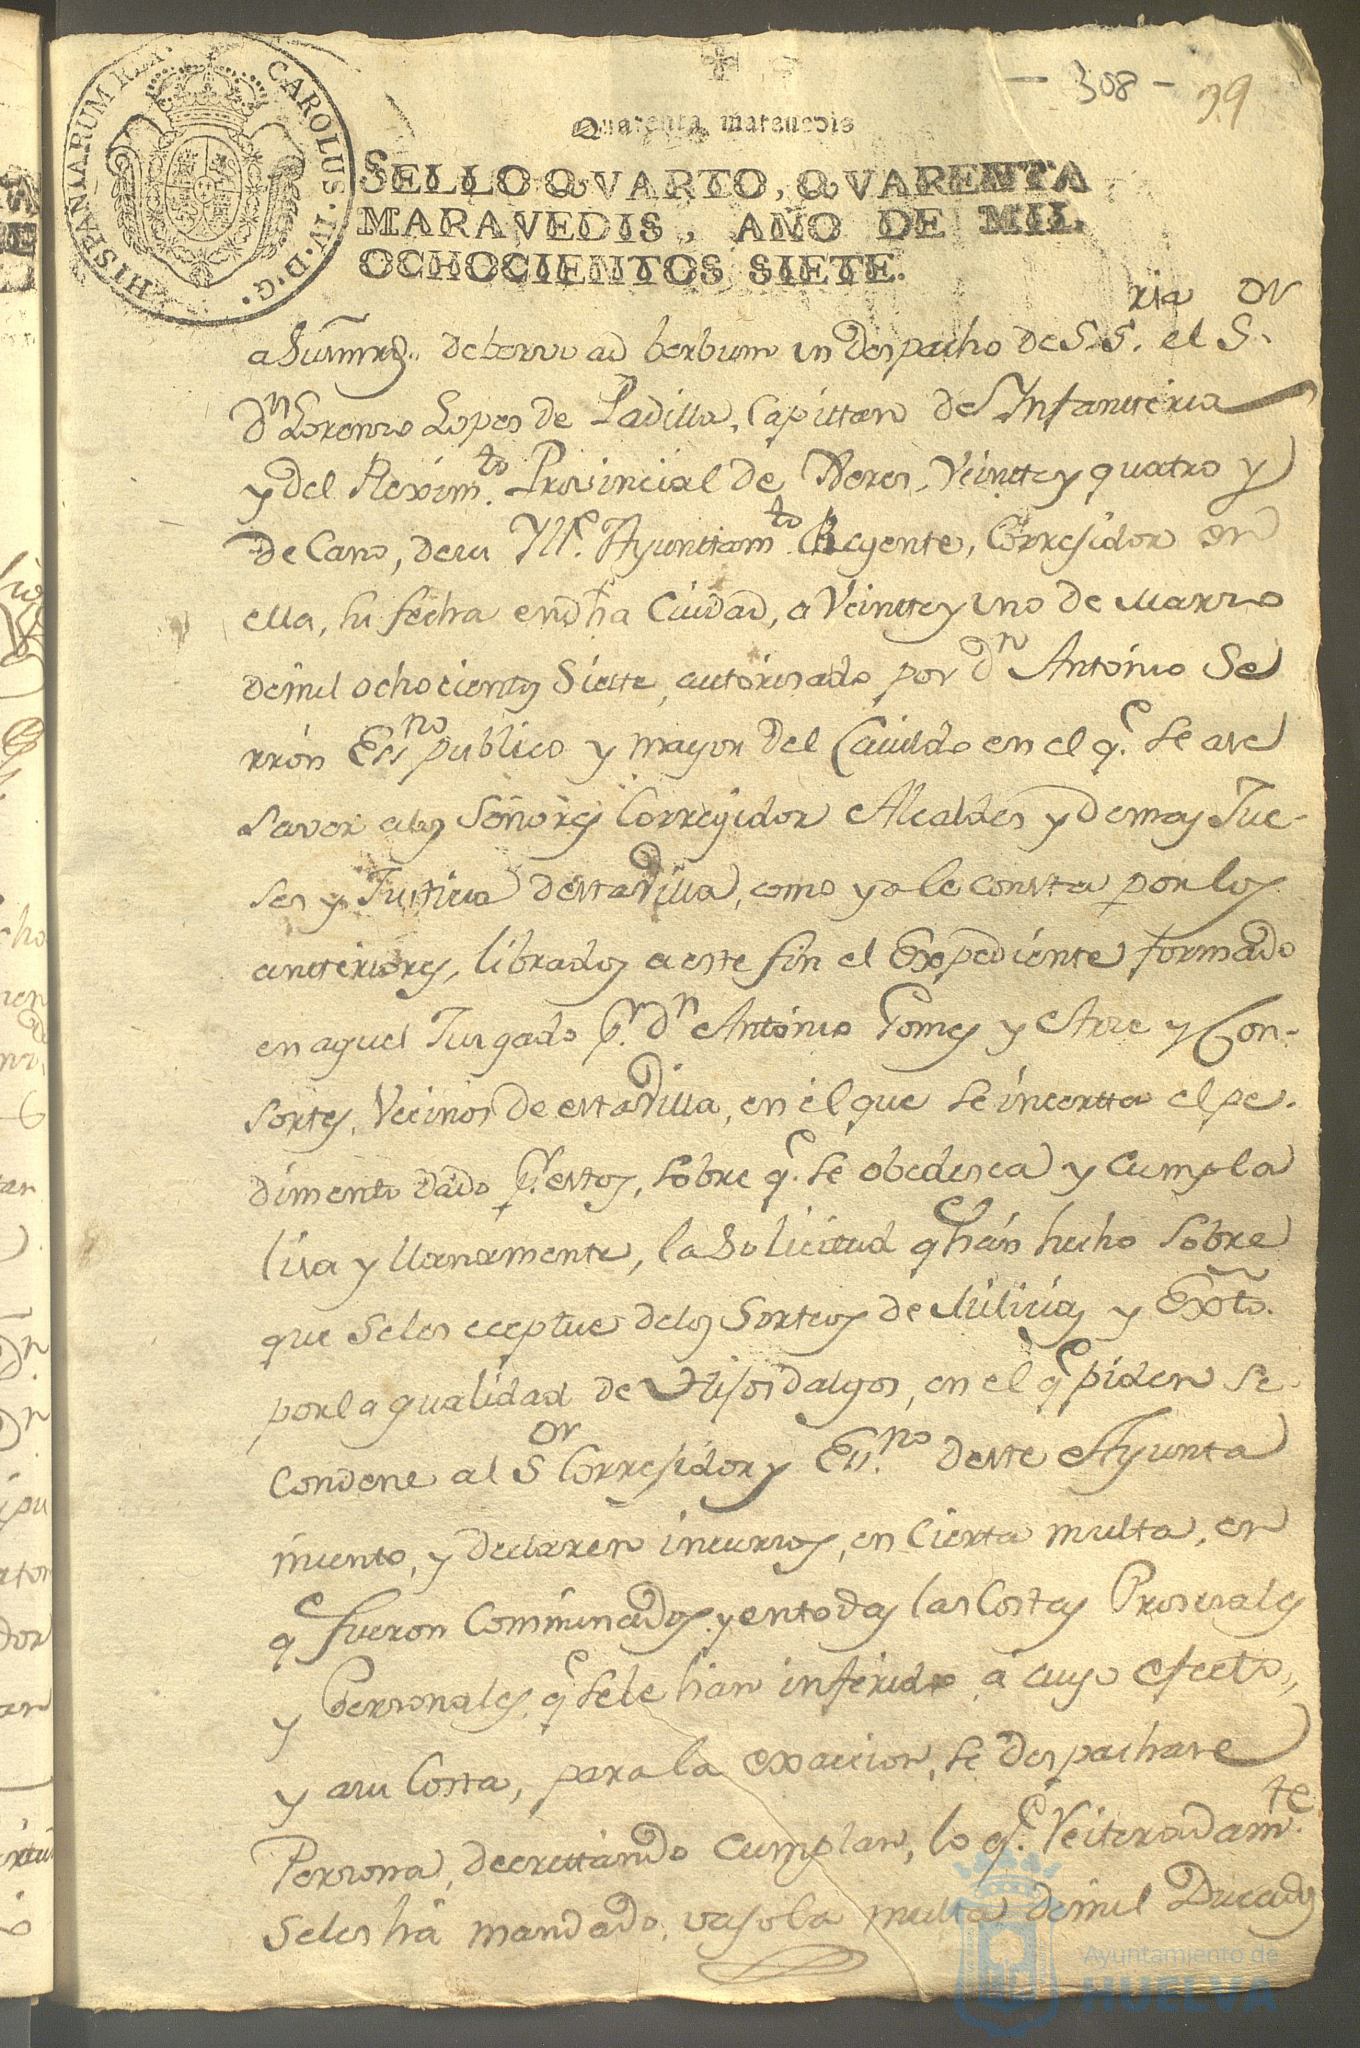 - 308 - 99
Quarenta maravedis
SELLO QVARTO, QVARENTA
MARAVEDIS, AÑO DE MIL
OCHOCIENTOS SIETE.
CAROLUS·IV·D·G·HISPANIARUM REX·
de berbo ad berbum un despacho de S. Sria. el Sor
Dn Lorenzo Lopes de Padilla, Capittan de Infantteria
y del Reximto. Provincial de Xeres, Veintte y quatro y
Decano, de su Ylle. Ayunttamto. Regente, Corresidor en
ella, su fecha en dha Ciudad, a Veintte y uno de Marzo
de mil ochocientos Siette, autorisado por dn Antonio Se
rrón Essno publico y mayor del Cavildo en el qe. se ase
saver a los Señores Corregidor Alcaldes y demas Jue-
ses y Justicia de esta Villa, como ya le consta por los
antteriores, librados a este fin el Expediente formado
en aquel Jusgado pr. dn Antonio Gomes y Arze y Con-
sortes, Vecinos de esta Villa, en el que se incertta el pe-
dimento dado pr. estos, sobre qe. se obedesca y cumpla
lisa y llanamente, la Solicitud qe han hecho sobre
que se les eceptue de los Sorteos de Milicias y Exto.
por la qualidad de Hijosdalgos, en el qe piden se
condene al Sor Corresidor y Essno. de este Ayunta
miento, y declaren incursos, en cierta multa, en
qe fueron comminados, y en todas las Costas Prosesales
y Personales, qe se le han inferido, a cuyo efecto,
y a su Costa, para la exaccion, se despachase
Persona, decrettando cumplan, lo qe. Reiteradamte.
se les há mandado, vajo la multa de mil Ducados
Ayuntamiento de
HUELVA